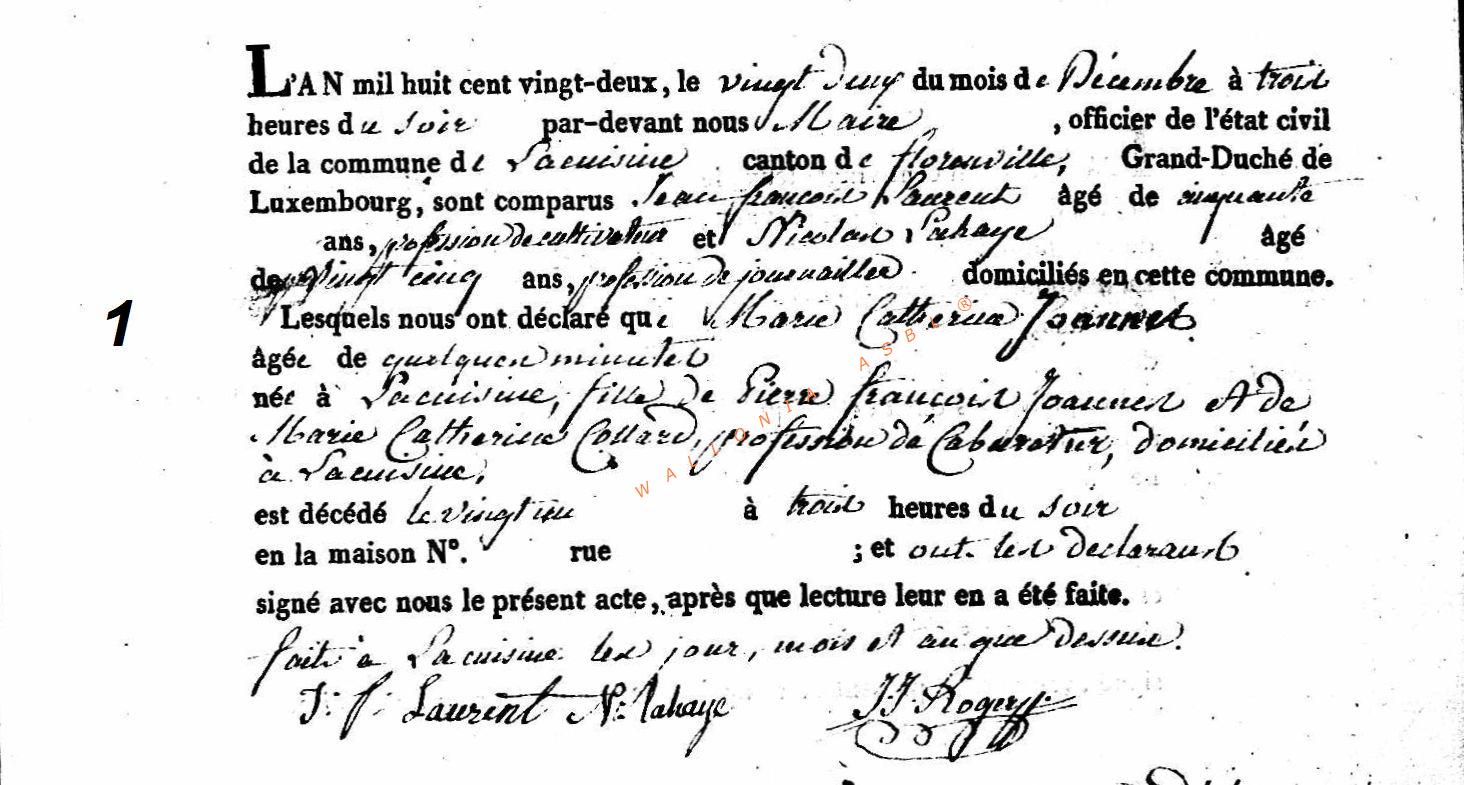 L'AN mil huit cent vingt-deux, le vingt deux du mois de Décembre à trois
heures du soir par-devant nous Maire, , officier de l'état civil
de la commune de Lacuisine canton de florenville, Grand-Duché de
Luxembourg, sont comparus Jean françois Laurent âgé de cinquante
ans, profession de cultivateur et Nicolas Lahaye âgé
de vingt cinq ans, profession de journaillier domiciliés en cette commune.
1
Lesquels nous ont déclaré que Marie Catherine Joannes
âgée de quelques minutes
née à Lacuisine, fille de Pierre françois Joannes et de
Marie Catherine Collard, profession de Cabaretur, domiciliés
à Lacuisine,
est décédé le vingt un à trois heures du soir
en la maison N°. rue ; et ont les declarants
signé avec nous le présent acte, après que lecture leur en a été faite.
fait à Lacuisine les jour, mois et an que dessus.
J: f: Laurent N: lahaye J.J. Rogery
WALLONIA ASBL ®